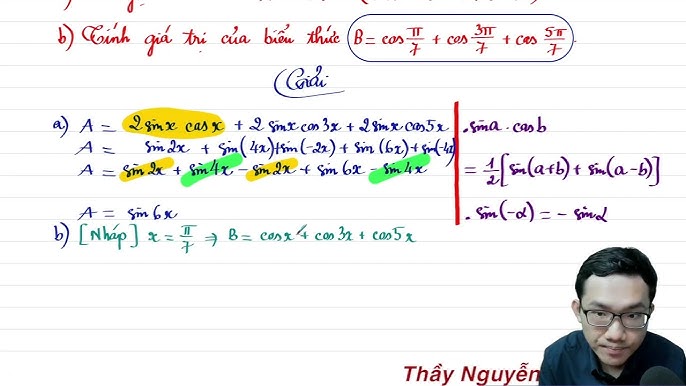 b) Tính giá trị của biểu thức B = cos π/7 + cos 3π/7 + cos 5π/7
Giải
a) A = 2 sinx cosx + 2 sinx cos3x + 2 sinx cos5x
A = sin2x + sin(4x) + sin(-2x) + sin(6x) + sin(-4x)
A = sin2x + sin4x - sin2x + sin6x - sin4x
A = sin6x
b) [Nháp] x = π/7 ⇒ B = cosx + cos3x + cos5x
. sina . cosb
= 1/2 [sin(a+b) + sin(a-b)]
. sin(-α) = - sinα
Thầy Nguyễn